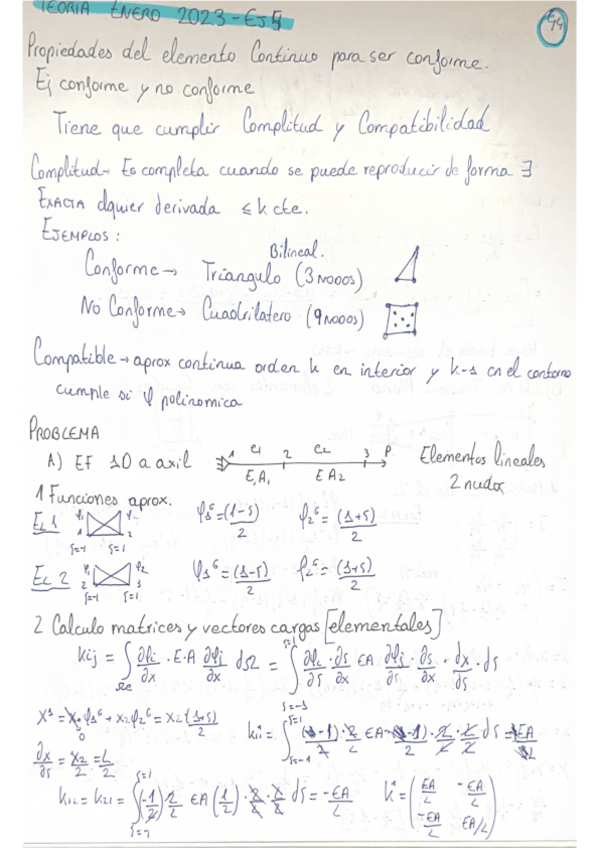 TEORIA ENERO 2023 - EJ5
Propiedades del elemento Continuo para ser conforme.
Ej conforme y no conforme
Tiene que cumplir Complitud y Compatibilidad
Complitud → Es completa cuando se puede reproducir de forma
EXACTA dquier derivada ≤ k cte.
EJEMPLOS:
Bilineal.
Conforme → Triangulo (3 NODOS)
No Conforme → Cuadrilatero (9 NODOS)
Compatible → aprox continua orden k en interior y k-1 en el contorno
cumple si φ polinomica
PROBLEMA
A) EF 1D a axil 1 e1 2 e2 3 P Elementos lineales
E,A1 E A2 2 nudos
1 Funciones aprox.
EL 1 φ1 φ2 φ1ᴳ = (1-s)/2 φ2ᴳ = (1+s)/2
1 2
s=-1 s=1
EL 2 φ1 φ2 φ1ᴳ = (1-s)/2 φ2ᴳ = (1+s)/2
2 3
s=-1 s=1
2 Calculo matrices y vectores cargas [elementales]
kij = ∫Ωe ∂φi/∂x · E·A ∂φj/∂x dΩ = ∫ s=-1 s=1 ∂φi/∂s · ∂s/∂x EA ∂φj/∂s · ∂s/∂x · dx/ds · ds
x¹ = x1 φ1ᴳ + x2 φ2ᴳ = x2 (1+s)/2
0
∂x/∂s = x2/2 = L/2
k12 = k21 = ∫ s=-1 s=1 (-1/2) 2/L EA (1/2) · 2/L · L/2 ds = -EA/L k¹ = (EA/L -EA/L
-EA/L EA/L)